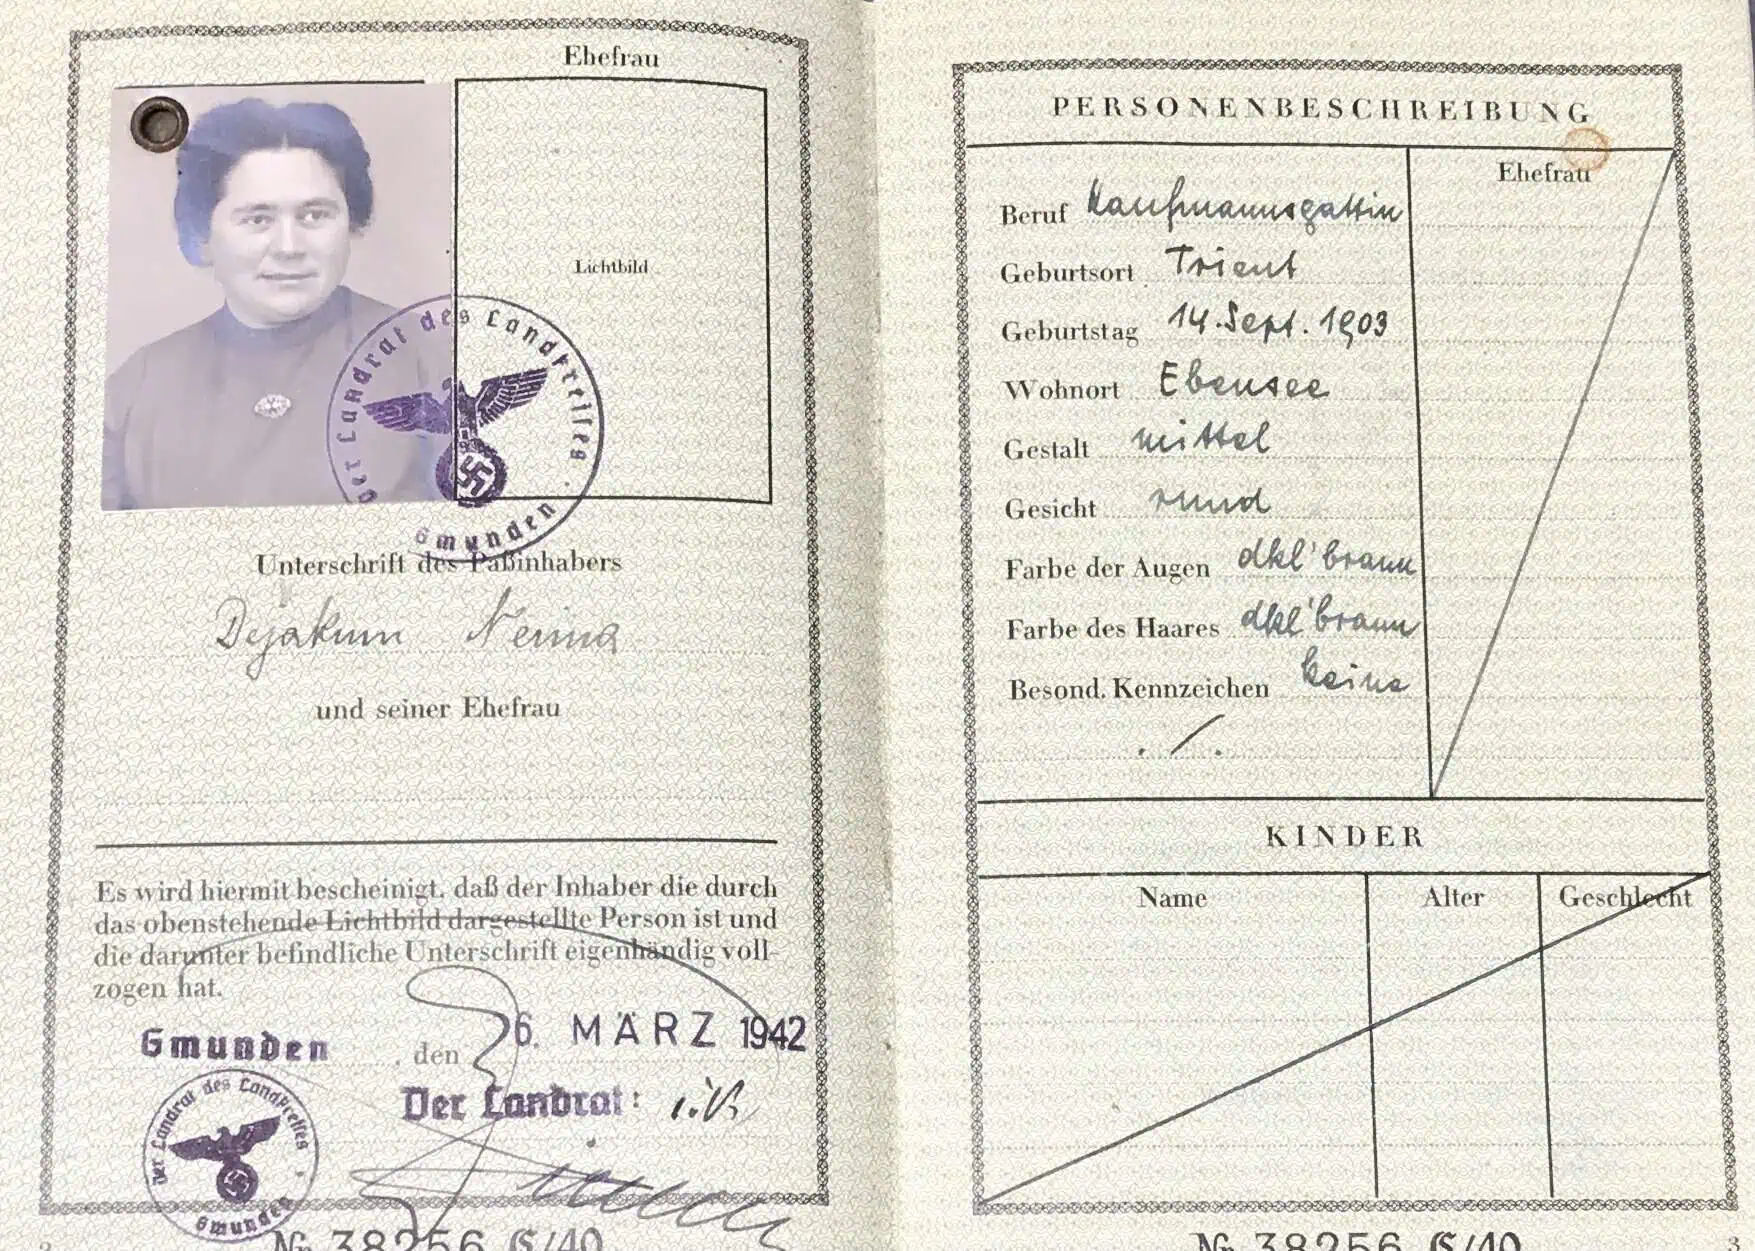 Ehefrau
Lichtbild
Der Landrat des Landkreises
Gmunden
Unterschrift des Paßinhabers
Dejakum Nerina
und seiner Ehefrau
Es wird hiermit bescheinigt, daß der Inhaber die durch
das obenstehende Lichtbild dargestellte Person ist und
die darunter befindliche Unterschrift eigenhändig voll-
zogen hat.
Gmunden, den 26. MÄRZ 1942
Der Landrat: i.V.
Der Landrat des Landkreises
Gmunden
№ 38256 S/40
PERSONENBESCHREIBUNG
Ehefrau
Beruf Kaufmannsgattin
Geburtsort Trient
Geburtstag 14. Sept. 1903
Wohnort Ebensee
Gestalt mittel
Gesicht rund
Farbe der Augen dkl'braun
Farbe des Haares dkl'braun
Besond. Kennzeichen keine
./.
KINDER
Name Alter Geschlecht
№ 38256 S/40
3